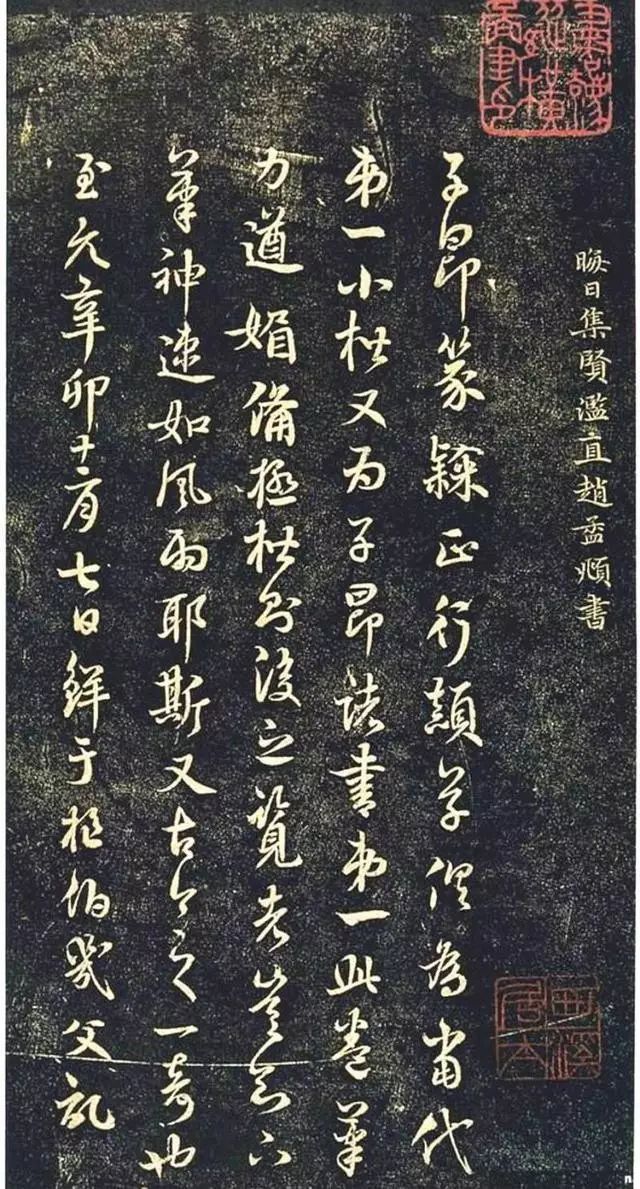 晦日集賢濫直趙孟頫書
子昂篆隸正行顛草俱為當代
第一小楷又為子昂諸書第一此卷筆
力遒媚備極楷則後之覽者豈知下
筆神速如風雨耶斯又古今之一奇也
至元辛卯十二月七日鮮于樞伯幾父記